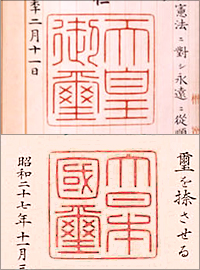 憲法ニ對シ永遠ニ從順
天皇
御璽
年二月十一日
璽を捺させる
大日本
國璽
昭和二十七年十一月三